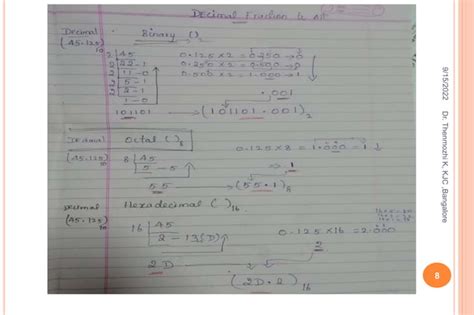 Decimal Fraction to all
Decimal
(45.125)10
Binary ( )2
2 | 45
2 | 22-1
2 | 11-0
2 | 5-1
2 | 2-1
1-0
101101
0.125 x 2 = 0.250 → 0
0.250 x 2 = 0.500 → 0
0.500 x 2 = 1.000 → 1
.001
(101101.001)2
Decimal
Octal ( )8
(45.125)10
8 | 45
5 - 5
55
0.125 x 8 = 1.000 = 1
.1
(55.1)8
Decimal
Hexadecimal ( )16
(45.125)10
16 | 45
2 - 13(D)
2D
0.125 x 16 = 2.000
2
(2D.2)16
9/15/2022
Dr. Thenmozhi K, KJC ,Bangalore
8